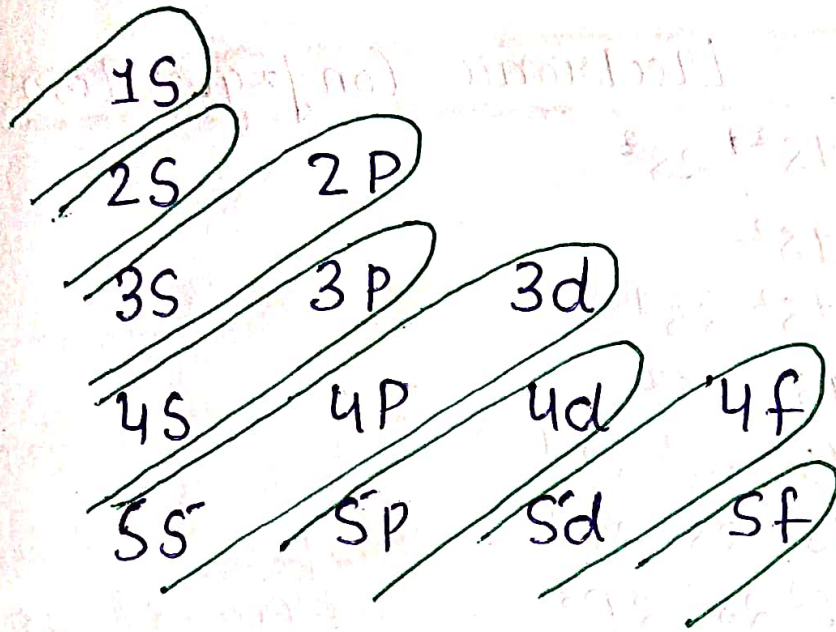 1S
2S 2P
3S 3P 3d
4S 4P 4d 4f
5S 5P 5d 5f